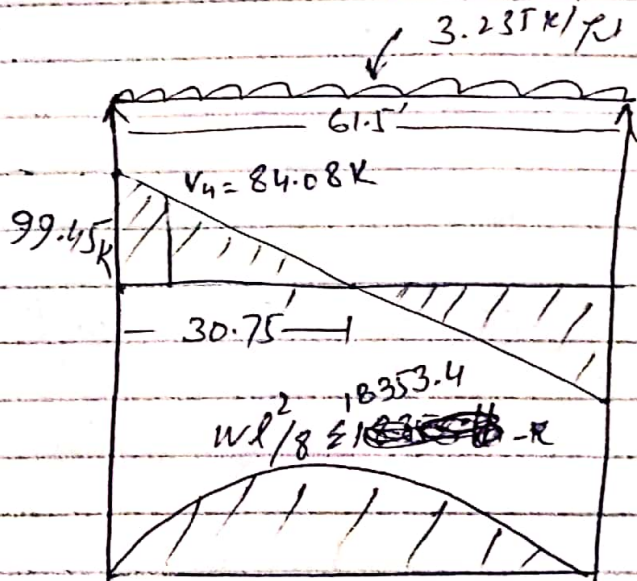 3.235 K/ft
61.5'
Vu = 84.08 K
99.45 K
30.75
18353.4
wl²/8 = -K